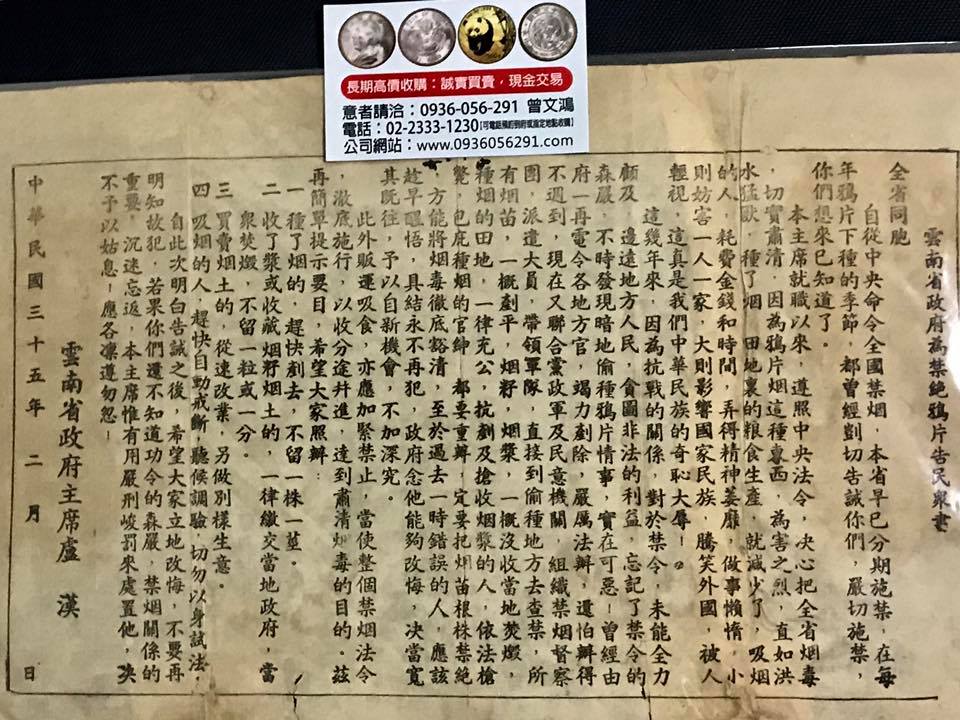 長期高價收購：誠實買賣，現金交易
意者請洽：0936-056-291 曾文鴻
電話：02-2333-1230【可電話預約到府或指定地點收購】
公司網站：www.0936056291.com
雲南省政府為禁絕鴉片告民眾書
全省同胞
自從中央命令全國禁烟，本省早已分期施禁，在每
年鴉片下種的季節，都曾經剴切告誡你們，嚴切施禁，
你們想來已知道了。
本主席就職以來，遵照中央法令，決心把全省烟毒
，切實肅清，因為鴉片烟這種東西，為害之烈，直如洪
水猛獸，種了烟，田地裏的粮食生產，就減少了，吸烟
的人，耗費金錢和時間，弄得精神萎靡，做事懶惰，小
則妨害一人一家，大則影響國家民族，騰笑外國，被人
輕視，這真是我們中華民族的奇恥大辱！
這幾年來，因為抗戰的關係，對於禁令，未能全力
顧及，邊遠地方人民，貪圖非法的利益，忘記了禁令的
森嚴，不時發現暗地偷種鴉片情事，實在可惡！曾經由
府一再電令各地方官，竭力剷除，嚴厲法辦，還怕辦得
不週到，現在又聯合黨政軍及民意機關，組織禁烟督察
團，派遣大員，帶領軍隊，直接到偷種地方去查禁，所
有烟苗，一概剷平，烟籽，烟漿，一概沒收當地焚燬，
種烟的田地，一律充公，抗剷及搶收烟漿的人，依法槍
斃，包庇種烟的官紳，都要重辦，定要把烟苗根株禁絕
，方能將烟毒徹底豁清，至於過去一時錯誤的人，應該
趁早醒悟，具結永不再犯，政府念他能夠改悔，决當寬
其既往，予以自新機會，不加深究。
此外販運吸食，亦應加緊禁止，當使整個禁烟法令
，澈底施行，以收分途幷進，達到肅清烟毒的目的。茲
再簡單提示要目，希望大家照辦：
一 種了烟的，趕快剷去，不留一株一莖。
二 收了漿或收藏烟籽烟土的，一律繳交當地政府，當
眾焚燬，不留一粒或一分。
三 買賣烟土的，從速改業，另做別樣生意。
四 吸烟的人，趕快自動戒斷，聽候調驗，切勿以身試法。
自此次明白告誡之後，希望大家立地改悔，不要再
明知故犯，若果你們還不知道功令的森嚴，禁烟關係的
重要，沉迷忘返，本主席惟有用嚴刑峻罰來處置他，决
不予以姑息！應各凛遵勿忽！
雲南省政府主席盧　漢
中華民國三十五年二月　日